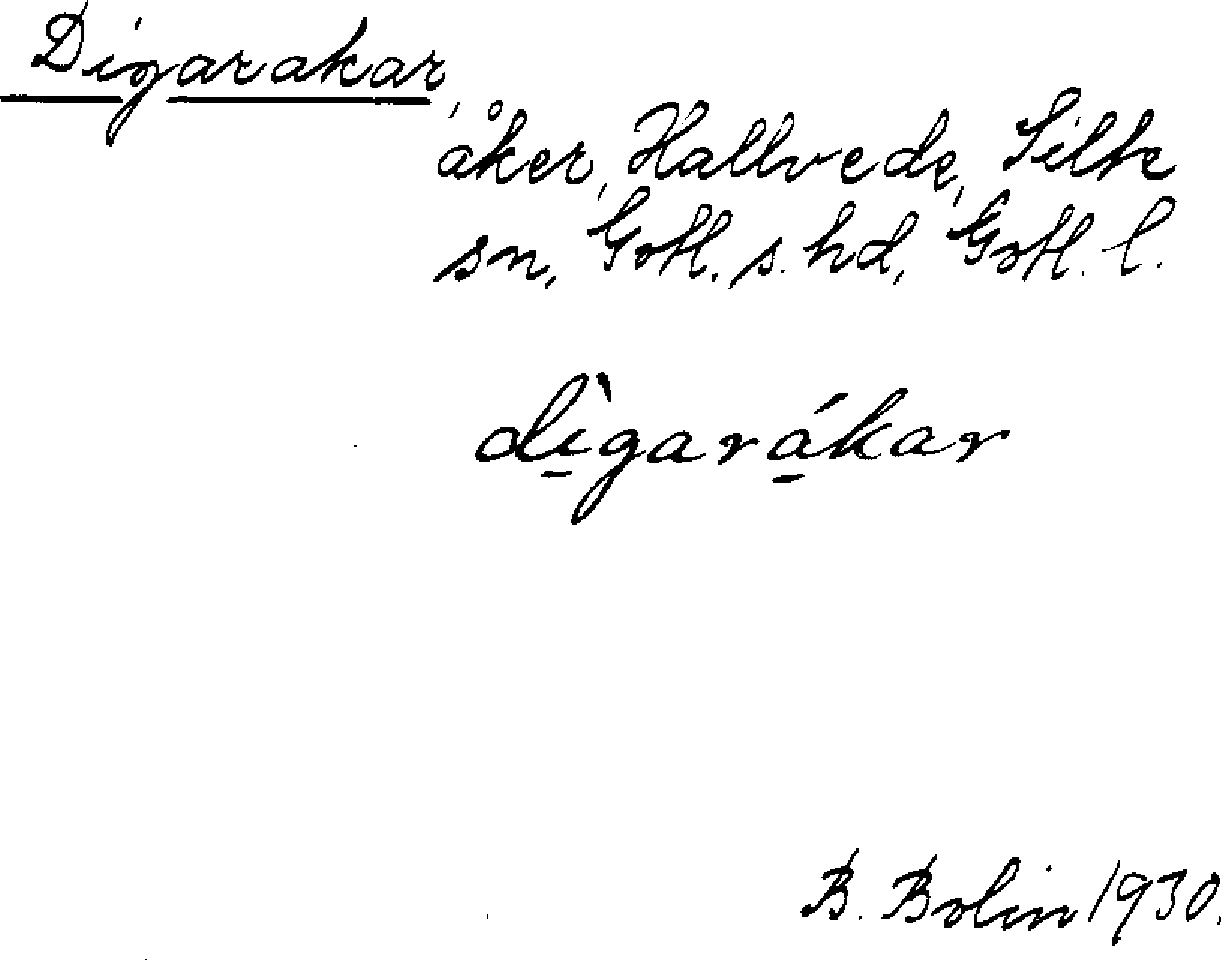 Digarakar,
åker, Hallvede, Silte
sn, Gotl. s. hd, Gotl. l.
dìgarákar
B. Bolin 1930.